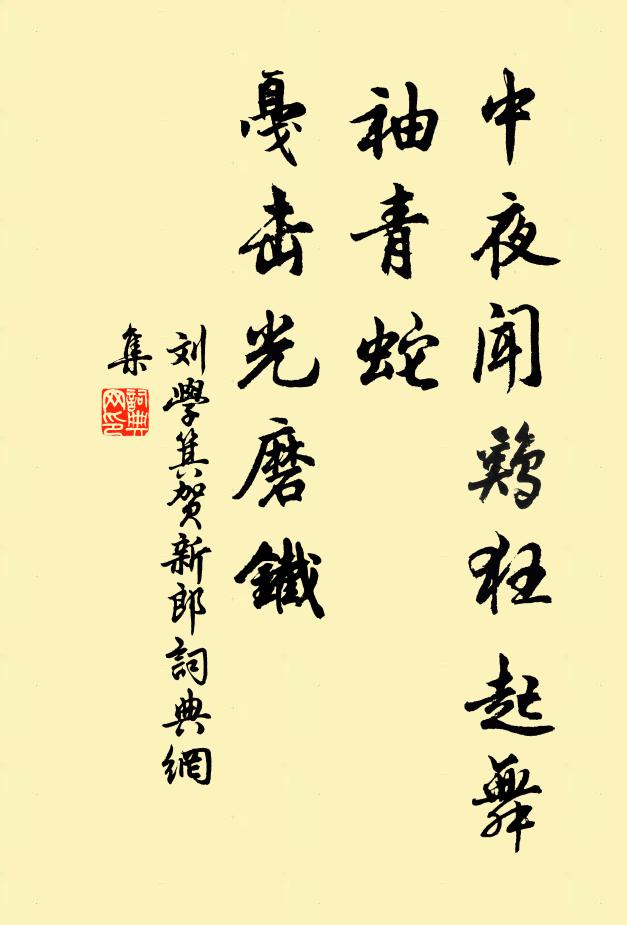 中夜闻鷄狂起舞
袖青蛇
戛击光磨鐵
刘學箕贺新郎詞典網
集
詞典网印